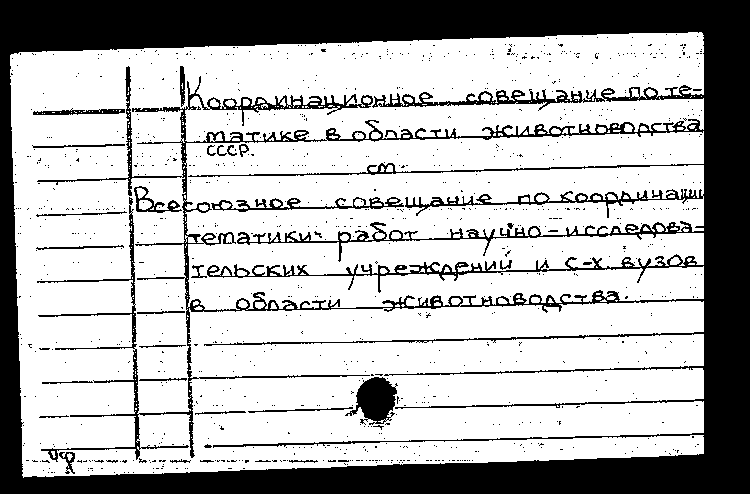 Координационное совещание по те-
матике в области животноводства
СССР.
см.
Всесоюзное совещание по координации
тематики работ научно-исследова-
тельских учреждений и с-х вузов
в области животноводства.
чф